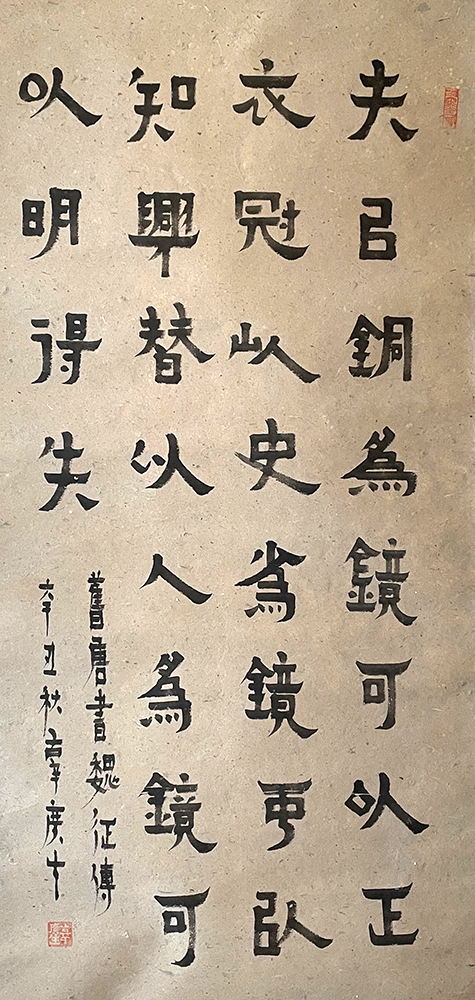 夫㠯銅為鏡可以正
衣冠以史為鏡可以
知興替以人為鏡可
以明得失
舊唐書魏征傳
辛丑秋